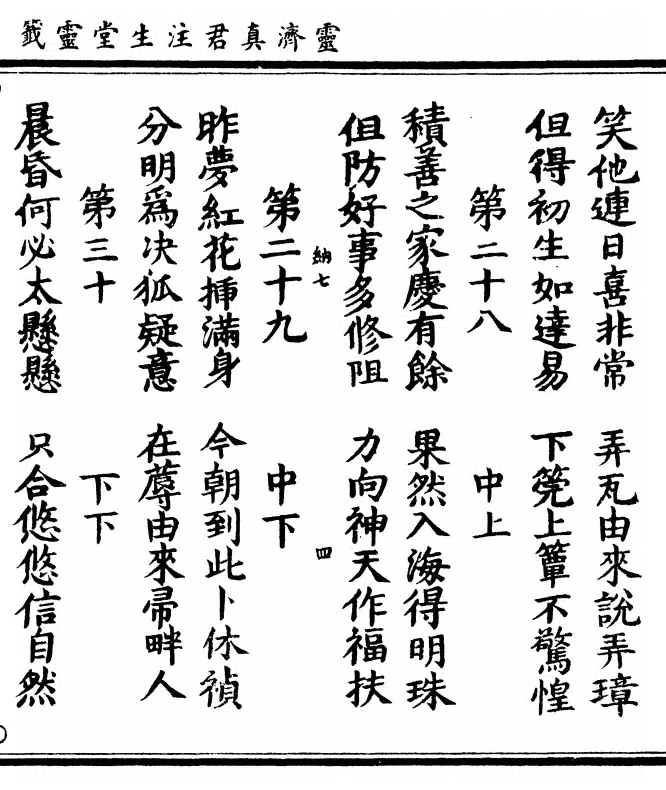 靈濟真君注生堂靈籤
笑他連日喜非常　弄瓦由來說弄璋
但得初生如達易　下筦上簟不驚惶
第二十八　中上
積善之家慶有餘　果然入海得明珠
但防好事多修阻　力向神天作福扶
納七　四
第二十九　中下
昨夢紅花揷滿身　今朝到此卜休禎
分明爲决狐疑意　在蓐由來帚畔人
第三十　下下
晨昏何必太懸懸　只合悠悠信自然